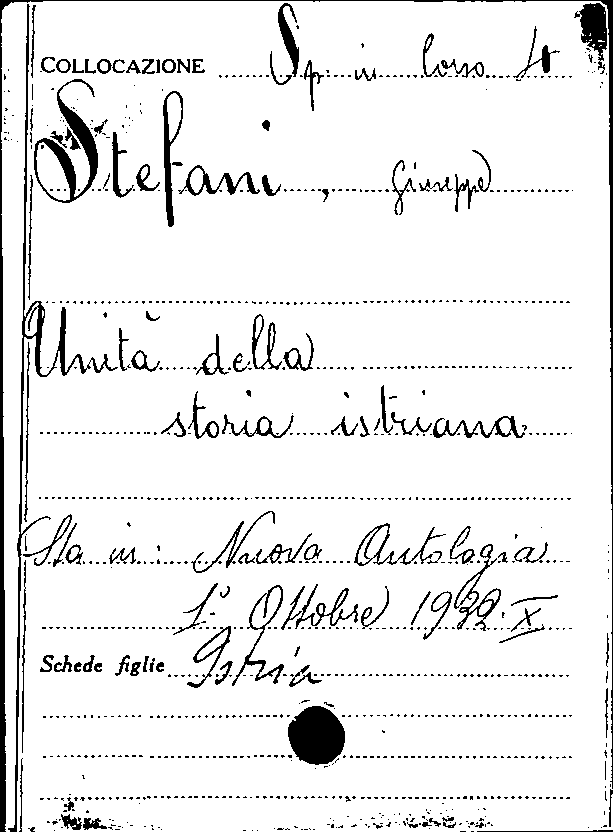 COLLOCAZIONE Sp. in Corso 4
Stefani, Giuseppe
Unità della
storia istriana
Sta in: Nuova Antologia
1° Ottobre 1932. X
Schede figlie Istria